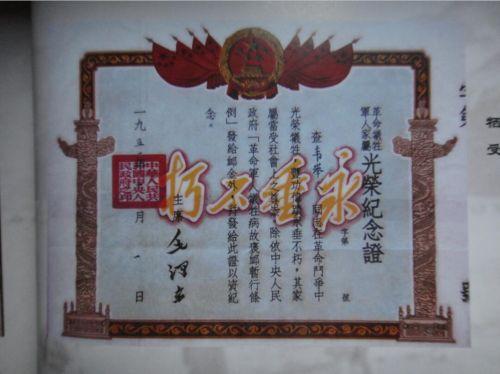 革命犧牲
軍人家屬
光榮紀念證
字第 號
查 同志在革命鬥爭中
光榮犧牲,豐功偉績永垂不朽,其家
屬當受社會上之尊崇。除依中央人民
政府「革命軍人犧牲病故褒卹暫行條
例」發給卹金外,並發給此證以資紀
念。
永垂不朽
主席 毛澤東
一九五 年 月一日
牺
受